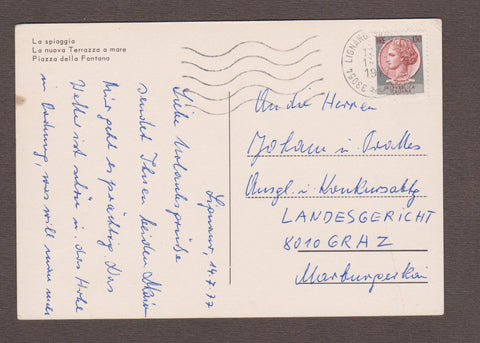 La spiaggia
La nuova Terrazza a mare
Piazza della Fontana
33054 LIGNANO
An die Herren
Johann u.
Ausgl. u. Konkursabtlg
LANDESGERICHT
8010 GRAZ
Marburgerkai
Lignano, 14.7.77
Liebe Urlaubsgrüße
sendet Ihnen beiden Maier
Mir geht es prächtig. Das
Wetter ist schön u. das Hotel
in Ordnung, was will man mehr